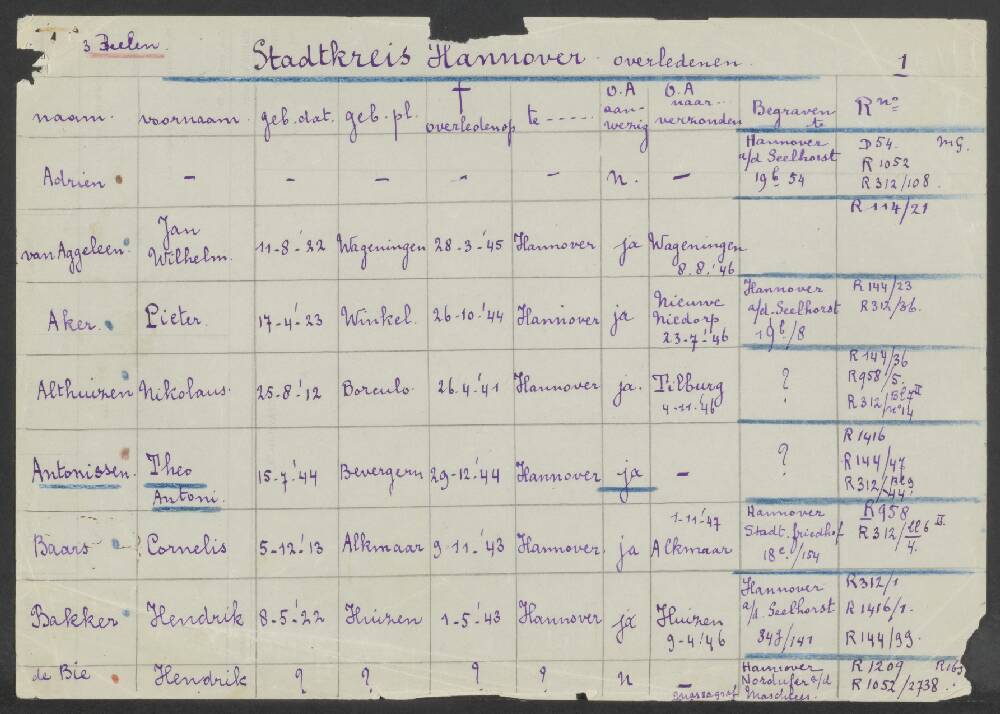 3 Zeelen.
Stadtkreis Hannover overledenen. 1
naam. voornaam. geb. dat. geb. pl. † overleden op te ----- O.A aanwezig O.A naar verzonden Begraven te R no
Adrien - - - - - n. - Hannover a/d Seelhorst 19b 54 D 54. R 1052 R 312/108. mG.
van Aggeleen Jan Wilhelm. 11-8-'22 Wageningen 28-3-'45 Hannover ja Wageningen 8.8.'46 R 114/21
Aker. Pieter. 17-4-'23 Winkel. 26-10-'44 Hannover ja Nieuwe Niedorp 23-7-'46 Hannover a/d-Seelhorst 19b/8 R 144/23 R312/36.
Althuizen Nikolaus. 25-8-'12 Borculo. 26.4-'41 Hannover ja. Tilburg 4-11-'46 ? R 144/36 R958/5. R 312/
Antonissen. Theo Antoni. 15-7-'44 Bevergern 29-12-'44 Hannover ja - ? R 1416 R 144/47 R 312/
Baars Cornelis 5-12-'13 Alkmaar 9-11-'43 Hannover. ja 1-11-'47 Alkmaar Hannover Stadt. friedhof 18c/154 R958 R 312/
Bakker Hendrik 8-5-'22 Huizen 1-5-'43 Hannover ja Huizen 9-4-'46 Hannover a/d Seelhorst 347/141 R312/1 R 1416/1. R 144/99.
de Bie Hendrik ? ? ? ? n - massagraf Hannover Nordufer a/d Maschsees. R 1209 R 1052/2738.